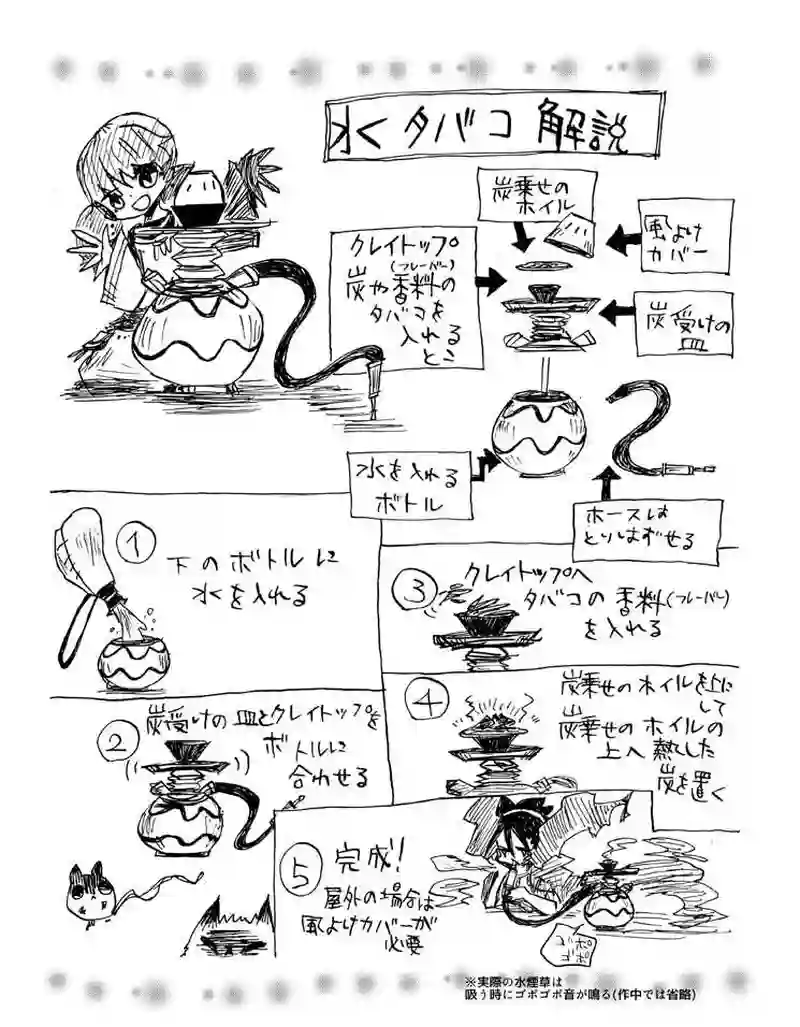 水タバコ 解説
炭乗せの
ホイル
風よけ
カバー
クレイトップ
(フレーバー)
炭や香料の
タバコを
入れる
とこ
炭受けの
皿
水を入れる
ボトル
ホースは
とりはずせる
1
下のボトルに
水を入れる
2
炭受けの皿とクレイトップを
ボトルに
合わせる
3
クレイトップへ
タバコの香料(フレーバー)
を入れる
4
炭乗せのホイルを上に
して
炭乗せのホイルの
上へ熱した
炭を置く
5
完成!
屋外の場合は
風よけカバーが
必要
ゴポ
ゴポ
※実際の水煙草は
吸う時にゴポゴポ音が鳴る(作中では省略)